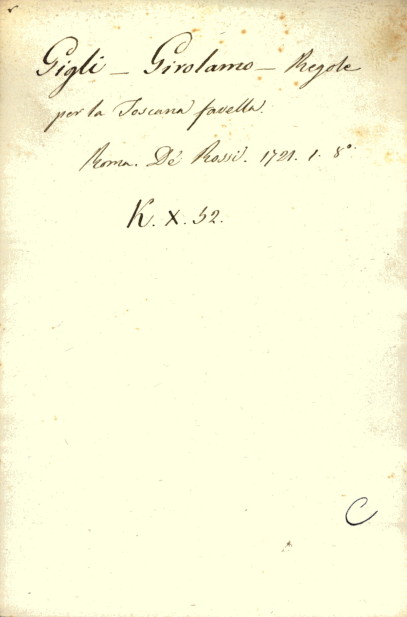 Gigli - Girolamo - Regole
per la Toscana favella.
Roma. De' Rossi. 1721. 1. 8°.
K. X. 52.
C